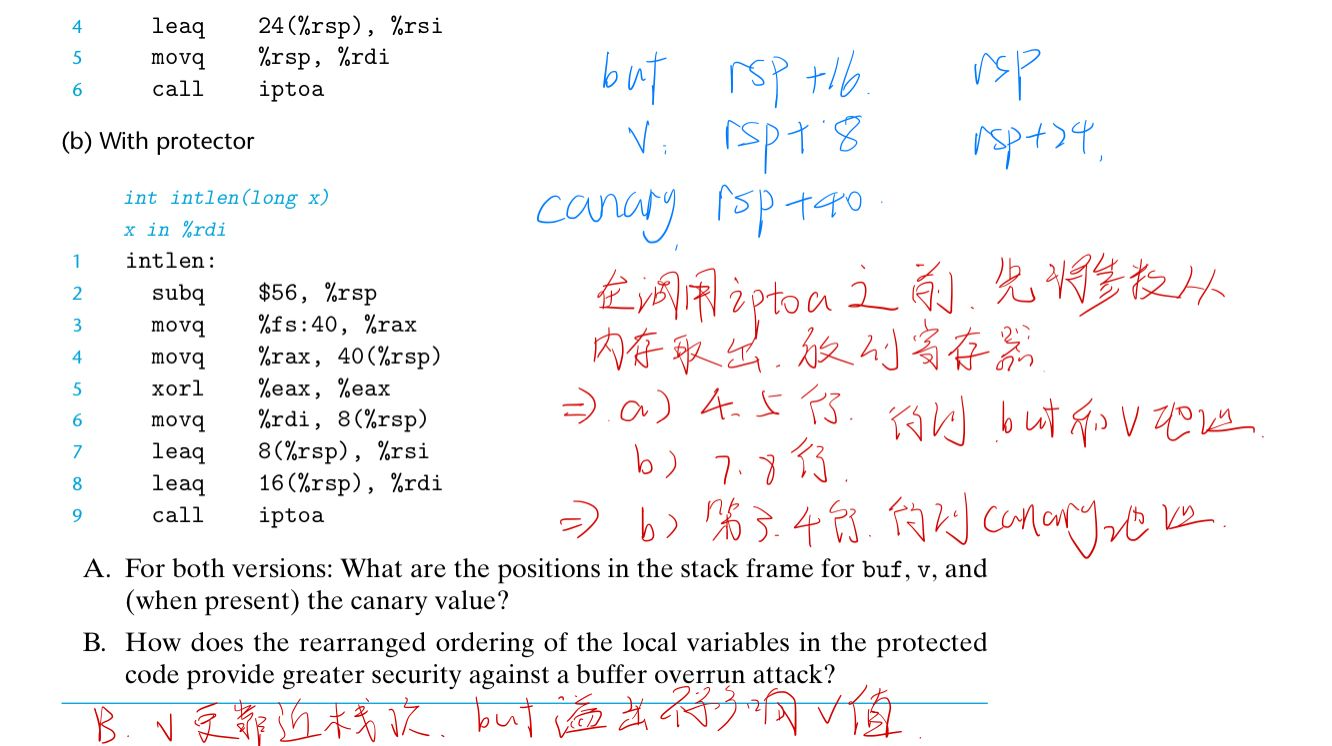 4 leaq 24(%rsp), %rsi
5 movq %rsp, %rdi
6 call iptoa
but rsp+16. rsp
v. rsp+8 rsp+24,
canary rsp+40
(b) With protector
int intlen(long x)
x in %rdi
1 intlen:
2 subq $56, %rsp
3 movq %fs:40, %rax
4 movq %rax, 40(%rsp)
5 xorl %eax, %eax
6 movq %rdi, 8(%rsp)
7 leaq 8(%rsp), %rsi
8 leaq 16(%rsp), %rdi
9 call iptoa
在调用iptoa之前.先将参数从
内存取出.放到寄存器
⇒ a) 4.5行. 得到 but和v地址.
b) 7.8行.
⇒ b) 第3.4行.得到canary地址.
A. For both versions: What are the positions in the stack frame for buf, v, and
(when present) the canary value?
B. How does the rearranged ordering of the local variables in the protected
code provide greater security against a buffer overrun attack?
B. v更靠近栈顶. but溢出不影响v值.